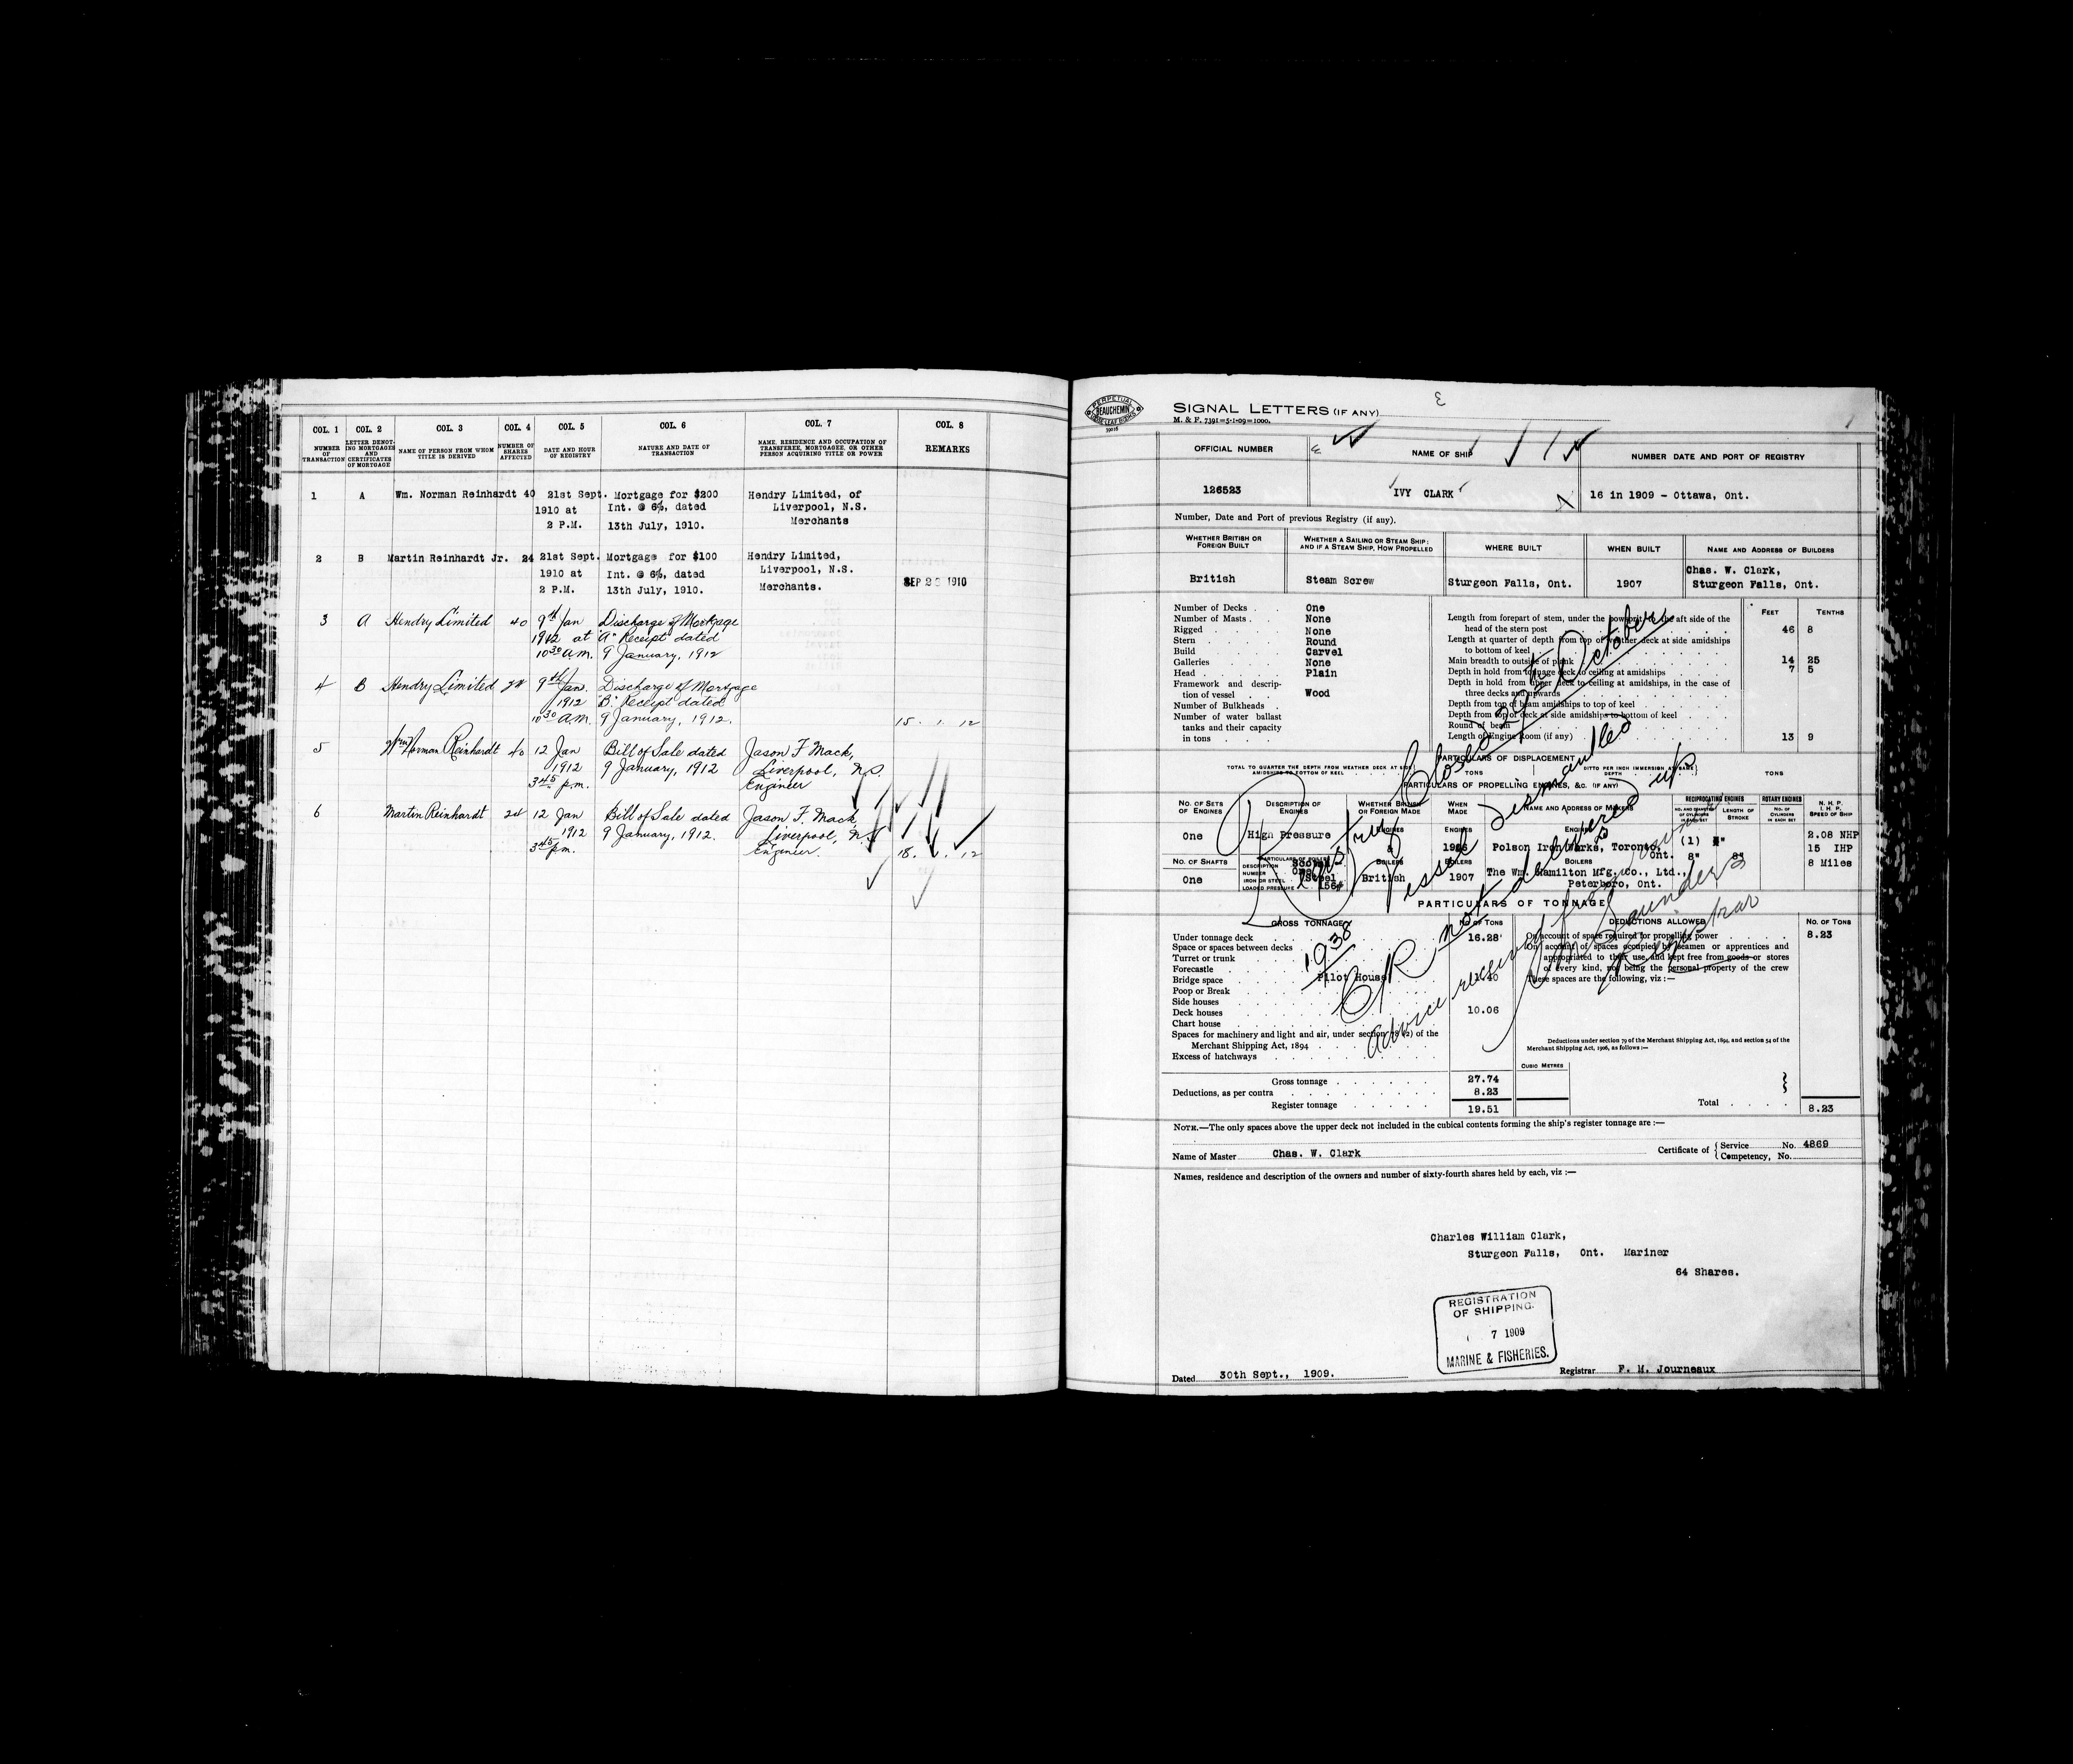 COL. 1
COL. 2
COL. 3
COL. 4
COL. 5
COL. 6
COL. 7
COL. 8
NUMBER OF TRANSACTION
LETTER DENOTING MORTGAGES AND CERTIFICATES OF MORTGAGE
NAME OF PERSON FROM WHOM TITLE IS DERIVED
NUMBER OF SHARES AFFECTED
DATE AND HOUR OF REGISTRY
NATURE AND DATE OF TRANSACTION
NAME, RESIDENCE AND OCCUPATION OF TRANSFEREE, MORTGAGEE, OR OTHER PERSON ACQUIRING TITLE OR POWER
REMARKS
1 A Wm. Norman Reinhardt 40 21st Sept. Mortgage for $200 Hendry Limited, of
1910 at Int. @ 6%, dated Liverpool, N.S.
2 P.M. 13th July, 1910. Merchants
2 B Martin Reinhardt Jr. 24 21st Sept. Mortgage for $100 Hendry Limited,
1910 at Int. @ 6%, dated Liverpool, N.S.
2 P.M. 13th July, 1910. Merchants. SEP 26 1910
3 A Hendry Limited 40 9th Jan Discharge of Mortgage
1912 at "A" Receipt dated
10 30 a.m. 9 January, 1912
4 B Hendry Limited 24 9th Jan. Discharge of Mortgage
1912 "B" Receipt dated
10 30 A.M. 9 January, 1912. 15. 1. 12
5 Wm Norman Reinhardt 40 12 Jan Bill of Sale dated Jason F Mack,
1912 9 January, 1912 Liverpool, N.S.
3 45 p.m. Engineer
6 Martin Reinhardt 24 12 Jan Bill of Sale dated Jason F. Mack
1912 9 January, 1912. Liverpool, N.S
3 45 pm. Engineer. 18. 1. 12
PERPETUAL
BEAUCHEMIN
SIGNAL LETTERS (IF ANY)
M. & F. 7391=5-1-09=1000.
OFFICIAL NUMBER
NAME OF SHIP
NUMBER DATE AND PORT OF REGISTRY
126523
IVY CLARK
16 in 1909 - Ottawa, Ont.
Number, Date and Port of previous Registry (if any).
WHETHER BRITISH OR FOREIGN BUILT
WHETHER A SAILING OR STEAM SHIP: AND IF A STEAM SHIP, HOW PROPELLED
WHERE BUILT
WHEN BUILT
NAME AND ADDRESS OF BUILDERS
British
Steam Screw
Sturgeon Falls, Ont.
1907
Chas. W. Clark,
Sturgeon Falls, Ont.
Number of Decks One
Number of Masts None
Rigged None
Stern Round
Build Carvel
Galleries None
Head Plain
Framework and description of vessel Wood
Number of Bulkheads
Number of water ballast tanks and their capacity in tons
FEET TENTHS
Length from forepart of stem, under the bowsprit to the aft side of the head of the stern post 46 8
Length at quarter of depth from top of weather deck at side amidships to bottom of keel
Main breadth to outside of plank 14 25
Depth in hold from tonnage deck to ceiling at amidships 7 5
Depth in hold from upper deck to ceiling at amidships, in the case of three decks and upwards
Depth from top of beam amidships to top of keel
Depth from top of deck at side amidships to bottom of keel
Round of beam
Length of Engine Room (if any) 13 9
PARTICULARS OF DISPLACEMENT
TOTAL TO QUARTER THE DEPTH FROM WEATHER DECK AT SIDE AMIDSHIPS TO BOTTOM OF KEEL
TONS
DITTO PER INCH IMMERSION AT SAME DEPTH
TONS
PARTICULARS OF PROPELLING ENGINES, &C. (IF ANY)
NO. OF SETS OF ENGINES
DESCRIPTION OF ENGINES
WHETHER BRITISH OR FOREIGN MADE
WHEN MADE
NAME AND ADDRESS OF MAKERS
RECIPROCATING ENGINES
ROTARY ENGINES
N. H. P.
I. H. P.
SPEED OF SHIP
LENGTH OF STROKE
One
High Pressure
ENGINES
ENGINES
1906
ENGINES
Polson Iron Works, Toronto, Ont.
(1)
8" 8"
2.08 NHP
15 IHP
8 Miles
NO. OF SHAFTS
PARTICULARS OF BOILERS
DESCRIPTION
NUMBER One
IRON OR STEEL Steel
LOADED PRESSURE 156#
One
BOILERS
British
BOILERS
1907
BOILERS
The Wm. Hamilton Mfg. Co., Ltd.,
Peterboro, Ont.
PARTICULARS OF TONNAGE
GROSS TONNAGE
NO. OF TONS
DEDUCTIONS ALLOWED
NO. OF TONS
Under tonnage deck 16.28
Space or spaces between decks
Turret or trunk
Forecastle
Bridge space Pilot House 1.40
Poop or Break
Side houses
Deck houses 10.06
Chart house
Spaces for machinery and light and air, under section 78 (2) of the Merchant Shipping Act, 1894
Excess of hatchways
On account of space required for propelling power 8.23
On account of spaces occupied by seamen or apprentices and
appropriated to their use, and kept free from goods or stores
of every kind, not being the personal property of the crew
These spaces are the following, viz :—
Deductions under section 79 of the Merchant Shipping Act, 1894, and section 54 of the
Merchant Shipping Act, 1906, as follows :—
CUBIC METRES
Gross tonnage 27.74
Deductions, as per contra 8.23
Register tonnage 19.51
Total 8.23
Registry Closed 29th October
1938
Vessel dismantled
C/R not delivered up
Advice received from owner
Saunders
Registrar
NOTE.—The only spaces above the upper deck not included in the cubical contents forming the ship's register tonnage are :—
Name of Master Chas. W. Clark
Certificate of Service No. 4869
Competency, No.
Names, residence and description of the owners and number of sixty-fourth shares held by each, viz :—
Charles William Clark,
Sturgeon Falls, Ont. Mariner
64 Shares.
REGISTRATION
OF SHIPPING.
7 1909
MARINE & FISHERIES.
Dated 30th Sept., 1909.
Registrar F. M. Journeaux